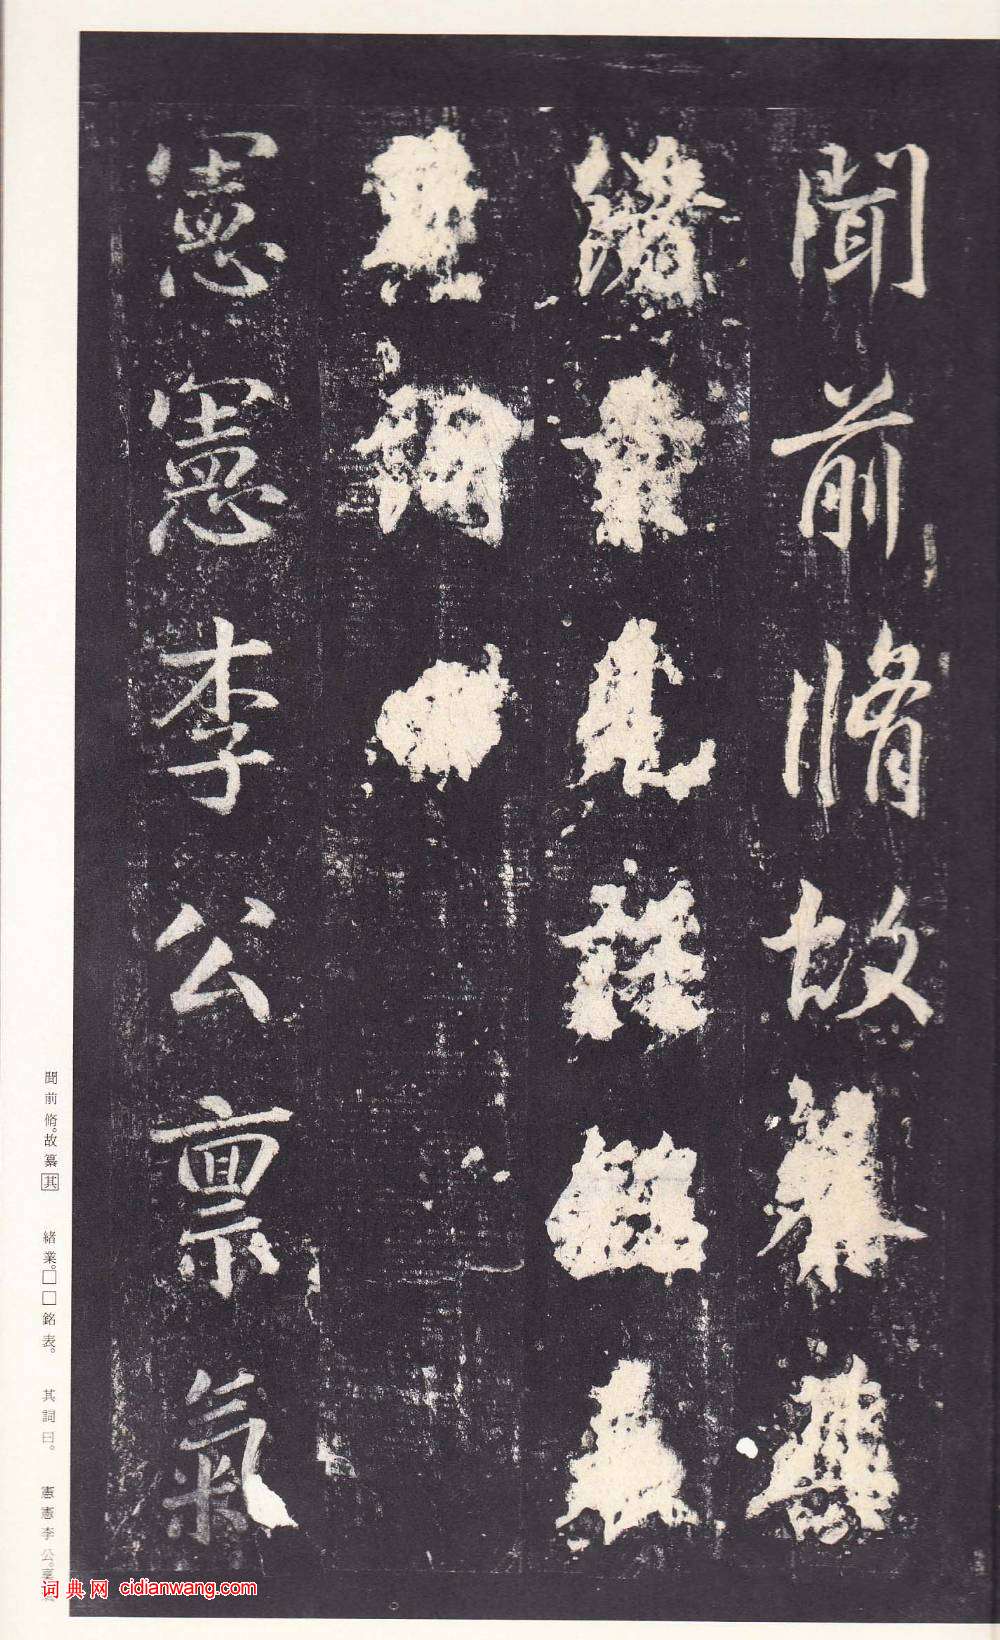 聞前脩故纂其
緒業□□銘表
其詞曰
憲憲李公稟氣
聞前脩。故纂其 緒業。□□銘表。 其詞曰。 憲憲李公。稟氣
词典网 cidianwang.com